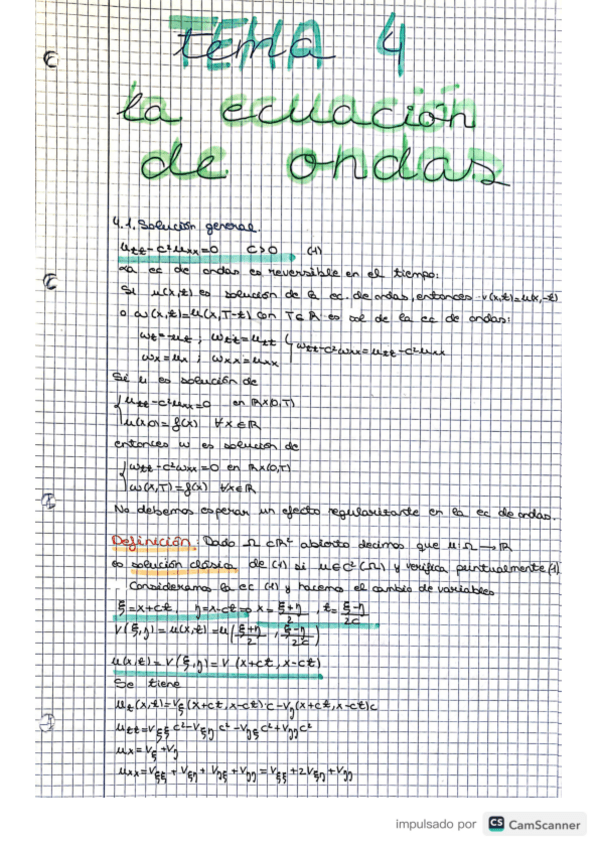 tema 4
la ecuación
de ondas
4.1. Solución general.
u_tt-c²u_xx=0 c>0 (1)
La ec de ondas es reversible en el tiempo:
Si u(x,t) es solución de la ec. de ondas, entonces v(x,t)=u(x,-t)
o w(x,t)=u(x,T-t) con T∈ℝ es sol de la ec de ondas:
w_t=-u_t ; w_tt=u_tt } w_tt-c²w_xx=u_tt-c²u_xx
w_x=u_x ; w_xx=u_xx
Si u es solución de
{ u_tt-c²u_xx=0 en ℝx(0,T)
u(x,0)=f(x) ∀x∈ℝ
entonces w es solución de
{ w_tt-c²w_xx=0 en ℝx(0,T)
w(x,T)=f(x) ∀x∈ℝ
No debemos esperar un efecto regularizante en la ec de ondas.
Definición: Dado Ω⊂ℝ² abierto decimos que u:Ω→ℝ
es solución clásica de (1) si u∈C²(Ω) y verifica puntualmente (1)
Consideramos la ec (1) y hacemos el cambio de variables
ξ=x+ct, η=x-ct ⇒ x=(ξ+η)/2, t=(ξ-η)/2c
V(ξ,η)=u(x,t)=u((ξ+η)/2, (ξ-η)/2c)
u(x,t)=V(ξ,η)=V(x+ct,x-ct)
Se tiene
u_t(x,t)=V_ξ(x+ct,x-ct)·c-V_η(x+ct,x-ct)c
u_tt=V_ξξ c²-V_ξη c²-V_ηξ c²+V_ηη c²
u_x=V_ξ+V_η
u_xx=V_ξξ+V_ξη+V_ηξ+V_ηη=V_ξξ+2V_ξη+V_ηη
impulsado por CS CamScanner